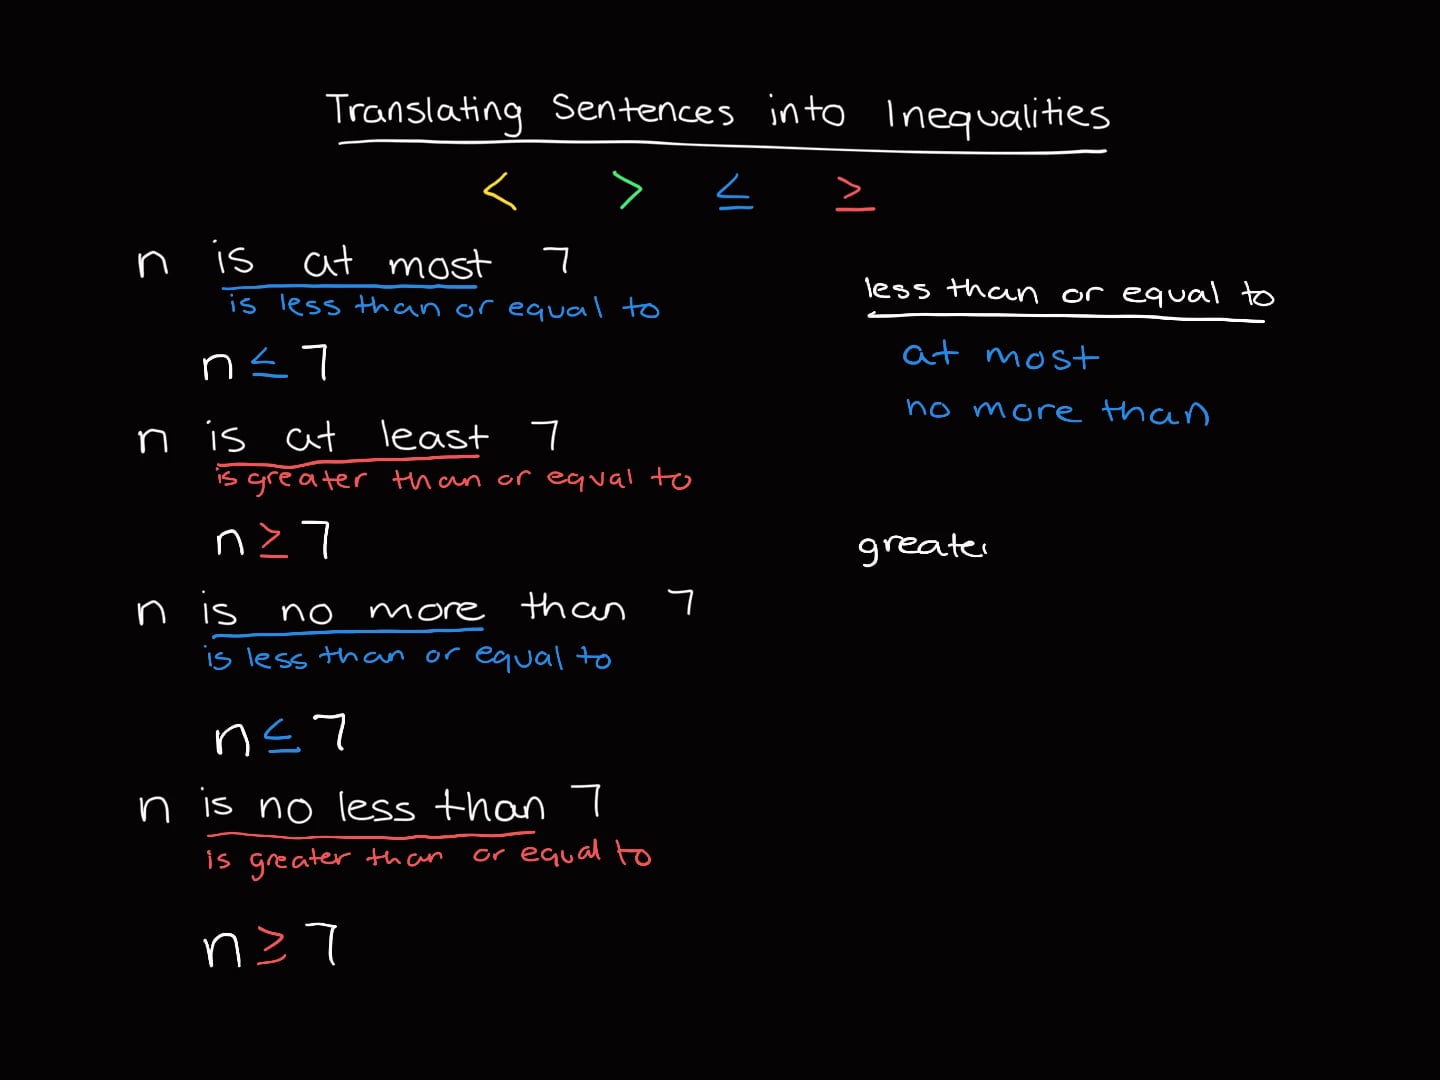 Translating Sentences into Inequalities
< > ≤ ≥
n is at most 7
is less than or equal to
n ≤ 7
n is at least 7
is greater than or equal to
n ≥ 7
n is no more than 7
is less than or equal to
n ≤ 7
n is no less than 7
is greater than or equal to
n ≥ 7
less than or equal to
at most
no more than
greater